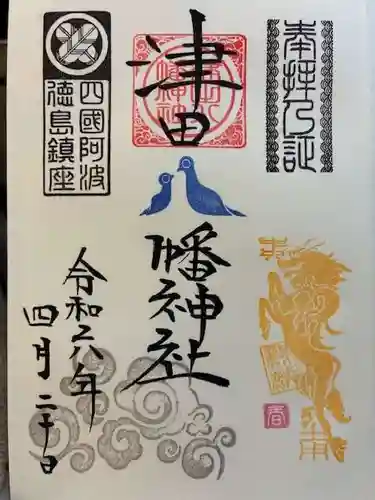 奉拝乃証
津田
八幡神社
四國阿波
徳島鎮座
令和六年
四月二十日
春